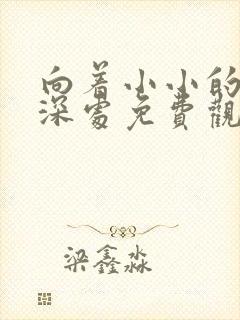 向着小小的
深处免費觀
梁鑫淼